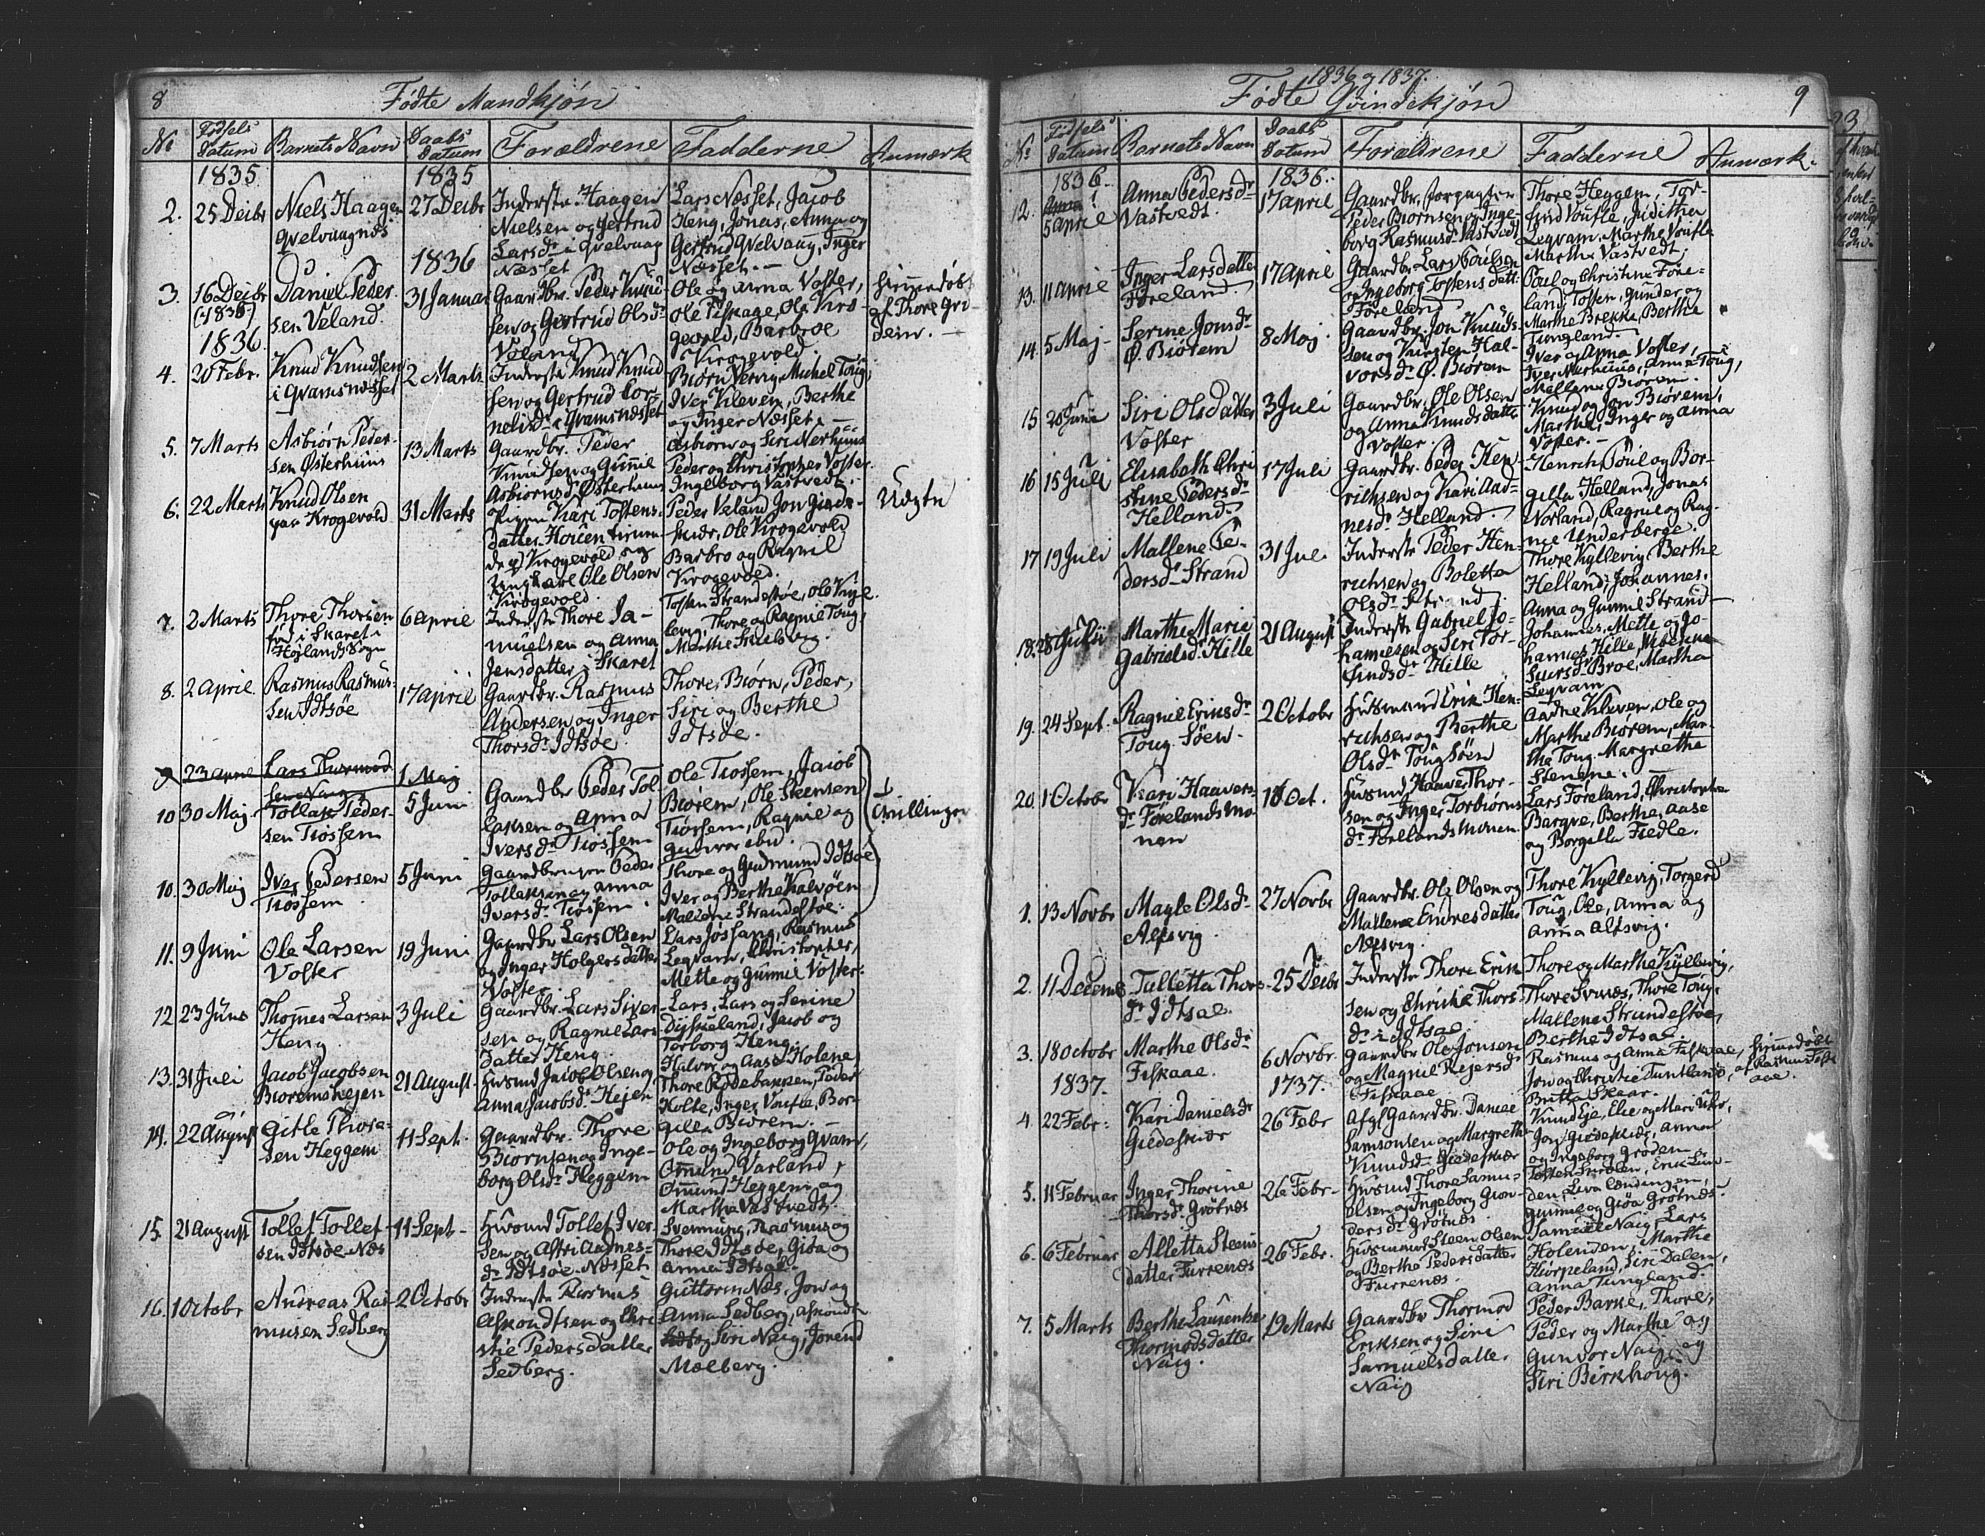 8
Fødte Mandkjøn
No
Fødsels Datum
Barnets Navn
Daabs Datum
Forældrene
Fadderne
Anmærk
1835
1835
2.
25 Decbr
Niels Haagen
Qvelvaagnæs
27 Decbr
Inderste Haagen
Nielsen og Gertrud
Larsdr i Qvelvaag
Næsset
Lars Næsset, Jacob
Heng, Jonas, Anna og
Gertrud Qvelvaag, Inger
Næsset.
1836
3.
16 Decbr
(1835)
Daniel Peder
sen Veland.
31 Januar
Gaardbr. Peder Knud
sen og Gertrud Olsdr
Veland
Ole og Anna Voster,
Ole Fiskaae, Ole Kro-
gevold, Barbroe
Krogevold
hjemmedøbt
af Thore Gri
deim.
1836.
4.
20 Febr.
Knud Knudsen
i Qvamsnæsset
2 Marts
Inderste Knud Knud
sen og Gertrud Cor
nelidr i Qvamsnæsset
Biørn Vervig, Michel Toug,
Iver Kleven, Berthe
og Inger Næsset.
5.
7 Marts
Asbiørn Peder-
sen Østerhuus
13 Marts
Gaardbr. Peder
Knudsen og Gunnil
Asbiørnsdr Østerhuus
Asbiørn og Siri Nerhuus
Peder og Christopher Voster
Ingeborg Vastvedt.
6.
22 Marts
Knud Olsen
paa Krogevold
31 Marts
Pigen Kari Tostens-
datter Houen
Krogevold og
Ungkarl Ole Olsen
Krogevold.
Peder Veland, Jon Giede-
skiær, Ole Krogevold
Barbro og Ragnil
Krogevold.
Uægte
7.
2 Marts
Thore Thorsen
fød i Skaret i
Høylands Sogn
6 April
Inderste Thore Sa-
muelsen og Anna
Jensdatter i Skaret
Tosten Strandestøe, Ole Kyl
levig, Thore og Ragnil Toug,
Marthe
8.
2 April
Rasmus Rasmus-
sen Idtsøe
17 April
Gaardbr. Rasmus
Andersen og Inger
Thorsdr Idtsøe.
Thore, Biørn, Peder,
Siri og Berthe
Idtsøe.
9
23 April
Lars Thormod
sen Naig
1 Maj
10
30 Maj
Tollak Peder-
sen Tiøssem
5 Juni
Gaardbr Peder Tol
laksen og Anna
Iversdr Tiøssem
Ole Tiøssem, Jacob
Biørem, Ole Steensen
Tiøssem, Ragnil og
Gunvor ibid.
Tvillinger
10.
30 Maj
Iver Pedersen
Tiøssem
5 Juni
Gaardbrugen Peder
Tollaksen og Anna
Iversdr Tiøssem.
Thore og Gudmund Idtsøe
Iver og Berthe Kalvøen
Mallene Strandestøe.
11.
9 Juni
Ole Larsen
Voster
19 Juni
Gaardbr Lars Olsen
og Inger Holgersdatter
Voster
Lars Jøssang, Rasmus
Legvam, Christopher,
Mette og Gunnil Voster
12
23 Juni
Thomes Larsen
Heng
3 Juli
Gaardbr. Lars Siver-
sen og Ragnil Lars
datter Heng.
Lars, Lars og Serine
Dyskeland, Jacob og
Torborg Heng.
13.
31 Juli
Jacob Jacobsen
Bioremshejen
21 August
Husmd Jacob Olsen og
Anna Jacobsdr Hejen
Halvor og Aase Holene
Thore Rødebakken, Peder
Holte, Inger Voufle, Bor-
gilla Biørem.
14.
22 August
Gitle Thore-
sen Heggem
11 Sept.
Gaardbr. Thore
Biørnsen og Inge-
borg Olsdr Heggem
Ole og Ingeborg Qvam,
Omund Varland,
Omund Heggem og
Martha Vastvedt.
15.
21 August
Tollef Tollef
sen Idtsøe Næs
11 Sept
Husmd Tollef Iver
sen og Astri Andnes-
dr Idtsøe-Næsset
Svennung, Rasmus og
Thore Idtsøe, Gioa og
Anna Idtsøe
16.
1 October
Andreas Ras
musen Sedberg
2 Octobr
Inderste Rasmus
Askoudtsen og Chri
stie Pedersdatter
Sedberg.
Guttorm Næs, Jon og
Anna Sedberg, Askoud
og Siri Naig, Jorend
Mælberg.
1836 og 1837.
Fødte Qvindekjøn
9
No
Fødsels Datum
Barnets Navn
Daabs Datum
Forældrene
Fadderne
Anmærk.
1836.
1836.
12.
5 April
Anna Pedersdr
Vastvedt.
17 April
Gaardbr, Forpagter
Peder Biørnsen og Inge-
borg Rasmusdr Vastvedt
Thore Heggem, Tor-
find Voufle, Juditha
Legvam, Marthe Voufle
Martha Vastvedt
13.
11 April
Inger Larsdatter
Føreland
17 April
Gaardbr Lars Poulsen
og Ingeborg Tostensdatt
Føreland
Paul og Christine Føre-
land, Tosten, Gunder og
Marthe Brekka, Berthe
Tungland.
14.
5 Maj
Serine Jonsdr
Ø. Biørem
8 Maj
Gaardbr. Jon Knuds-
sen og Kirsten Hal-
vorsdr Ø. Biørem
Iver og Anna Voster,
Iver Marhuus, Anne Toug,
Mallene Biørem.
15
26 Juni
Siri Olsdatter
Voster
3 Juli
Gaardbr, Ole Olsen
og Anna Knudsdatter
Voster.
Knud og Jon Biørem,
Marthe, Inger og Anna
Voster.
16
15 Juli
Elisabeth Chri
stine Pedersdr
Helland.
17 Juli
Gaardbr. Peder Hen
richsen og Kari Aad-
nesdr Helland.
Henrich, Poul og Bor-
gilla Helland, Jonas
Norland, Ragnil og Rag-
nie Underberge.
17
19 Juli
Mallene Pe-
dersdr Strand
31 Juli
Inderste Peder Hen-
richsen og Boletta
Olsdr Strand
Thore Kyllevig, Berthe
Helland, Johannes,
Anna og Gunnil Strand
18.
28 Juli
Marthe Marie
Gabrielsdr Hille
21 August
Inderste Gabriel Jo-
hannesen og Siri Tor-
findsdr Hille
Johannes, Mette og Jo-
hannes Hille,
Broe, Martha
Legvam
19.
24 Sept.
Ragnil Eriksdr
Toug-Søen
2 Octobr
Husmand Erik Hen-
richsen og Berthe
Olsdr Toug Søen
Aadne Kleven, Ole og
Marthe Biørem, Mar-
tha Toug, Margrethe
Stenene.
20.
1 October
Kari Haavers-
dr Førelandsmo-
nen
Oct.
Husmd, Haaver Thor-
sen og Inger Torbiørns
dr Førelandsmonen
Lars Føreland, Christopher
Bargve, Bertha, Aase
og Borgilla Fiedle.
1.
13 Novbr
Magle Olsdr
Alfsvig
27 Novbr
Gaardbr. Ole Olsen og
Mallene Endresdatter
Alfsvig.
Thore Kyllevig, Torgerd
Toug, Ole, Anna og
Anna Alfsvig.
2.
11 Decemb
Tulletta Thors-
dr Idtsøe.
25 Decbr
Inderste Thore Erik
sen og Christie Thors
dr i Idtsøe
Thore og Marthe Kyllevig,
Thore Toug
Mallene Strandestøe,
Berthe Idtsøe
3.
18 Octobr
Marthe Olsdr
Fiskaae.
6 Novbr.
Gaardbr Ole Jonsen
og Magnil Rejersdr
Fiskaae
Rasmus og Anna Fiskaae,
Jon og Christie Tuntland,
Britta Skaar.
hjemmedøbt
af Rasmus Fisk
aae.
1837.
1737.
4.
22 Febr.
Kari Danielsdr
Giedeskiær
26 Febr
Afgl Gaardbr. Daniel
Samsonsen og Margrethe
Knudsdr Giedeskiær
Knud Eje, Elie og Mari
Jon Giedeskiær, Anna
og Ingeborg Grødem
5.
11 Februar
Inger Thorine
Thorsdr Grøtnæs
26 Febr
Husmd Thore Samu-
elsen og Ingeborg Gun-
dersdr Grøtnæs.
Gunnil og Gioa Grøtnæs.
6.
6 Februar
Alletta Steens
datter Furrenæs
26 Febr.
Husmand Steen Olsen
og Berthe Pedersdatter
Furrenæs.
Samuel Naig, Lars
Holenden, Marthe
Kiørpeland, Siri Dalen,
Anna Tungland.
7.
5 Marts
Berthe Laurentse
Thormodsdatter
Naig.
19 Marts
Gaardbr Thormod
Eriksen og Siri
Samuelsdatter
Naig
Peder Barke, Thore,
Peder og Marthe og
Gunvor Naig og
Siri Birkhoug.